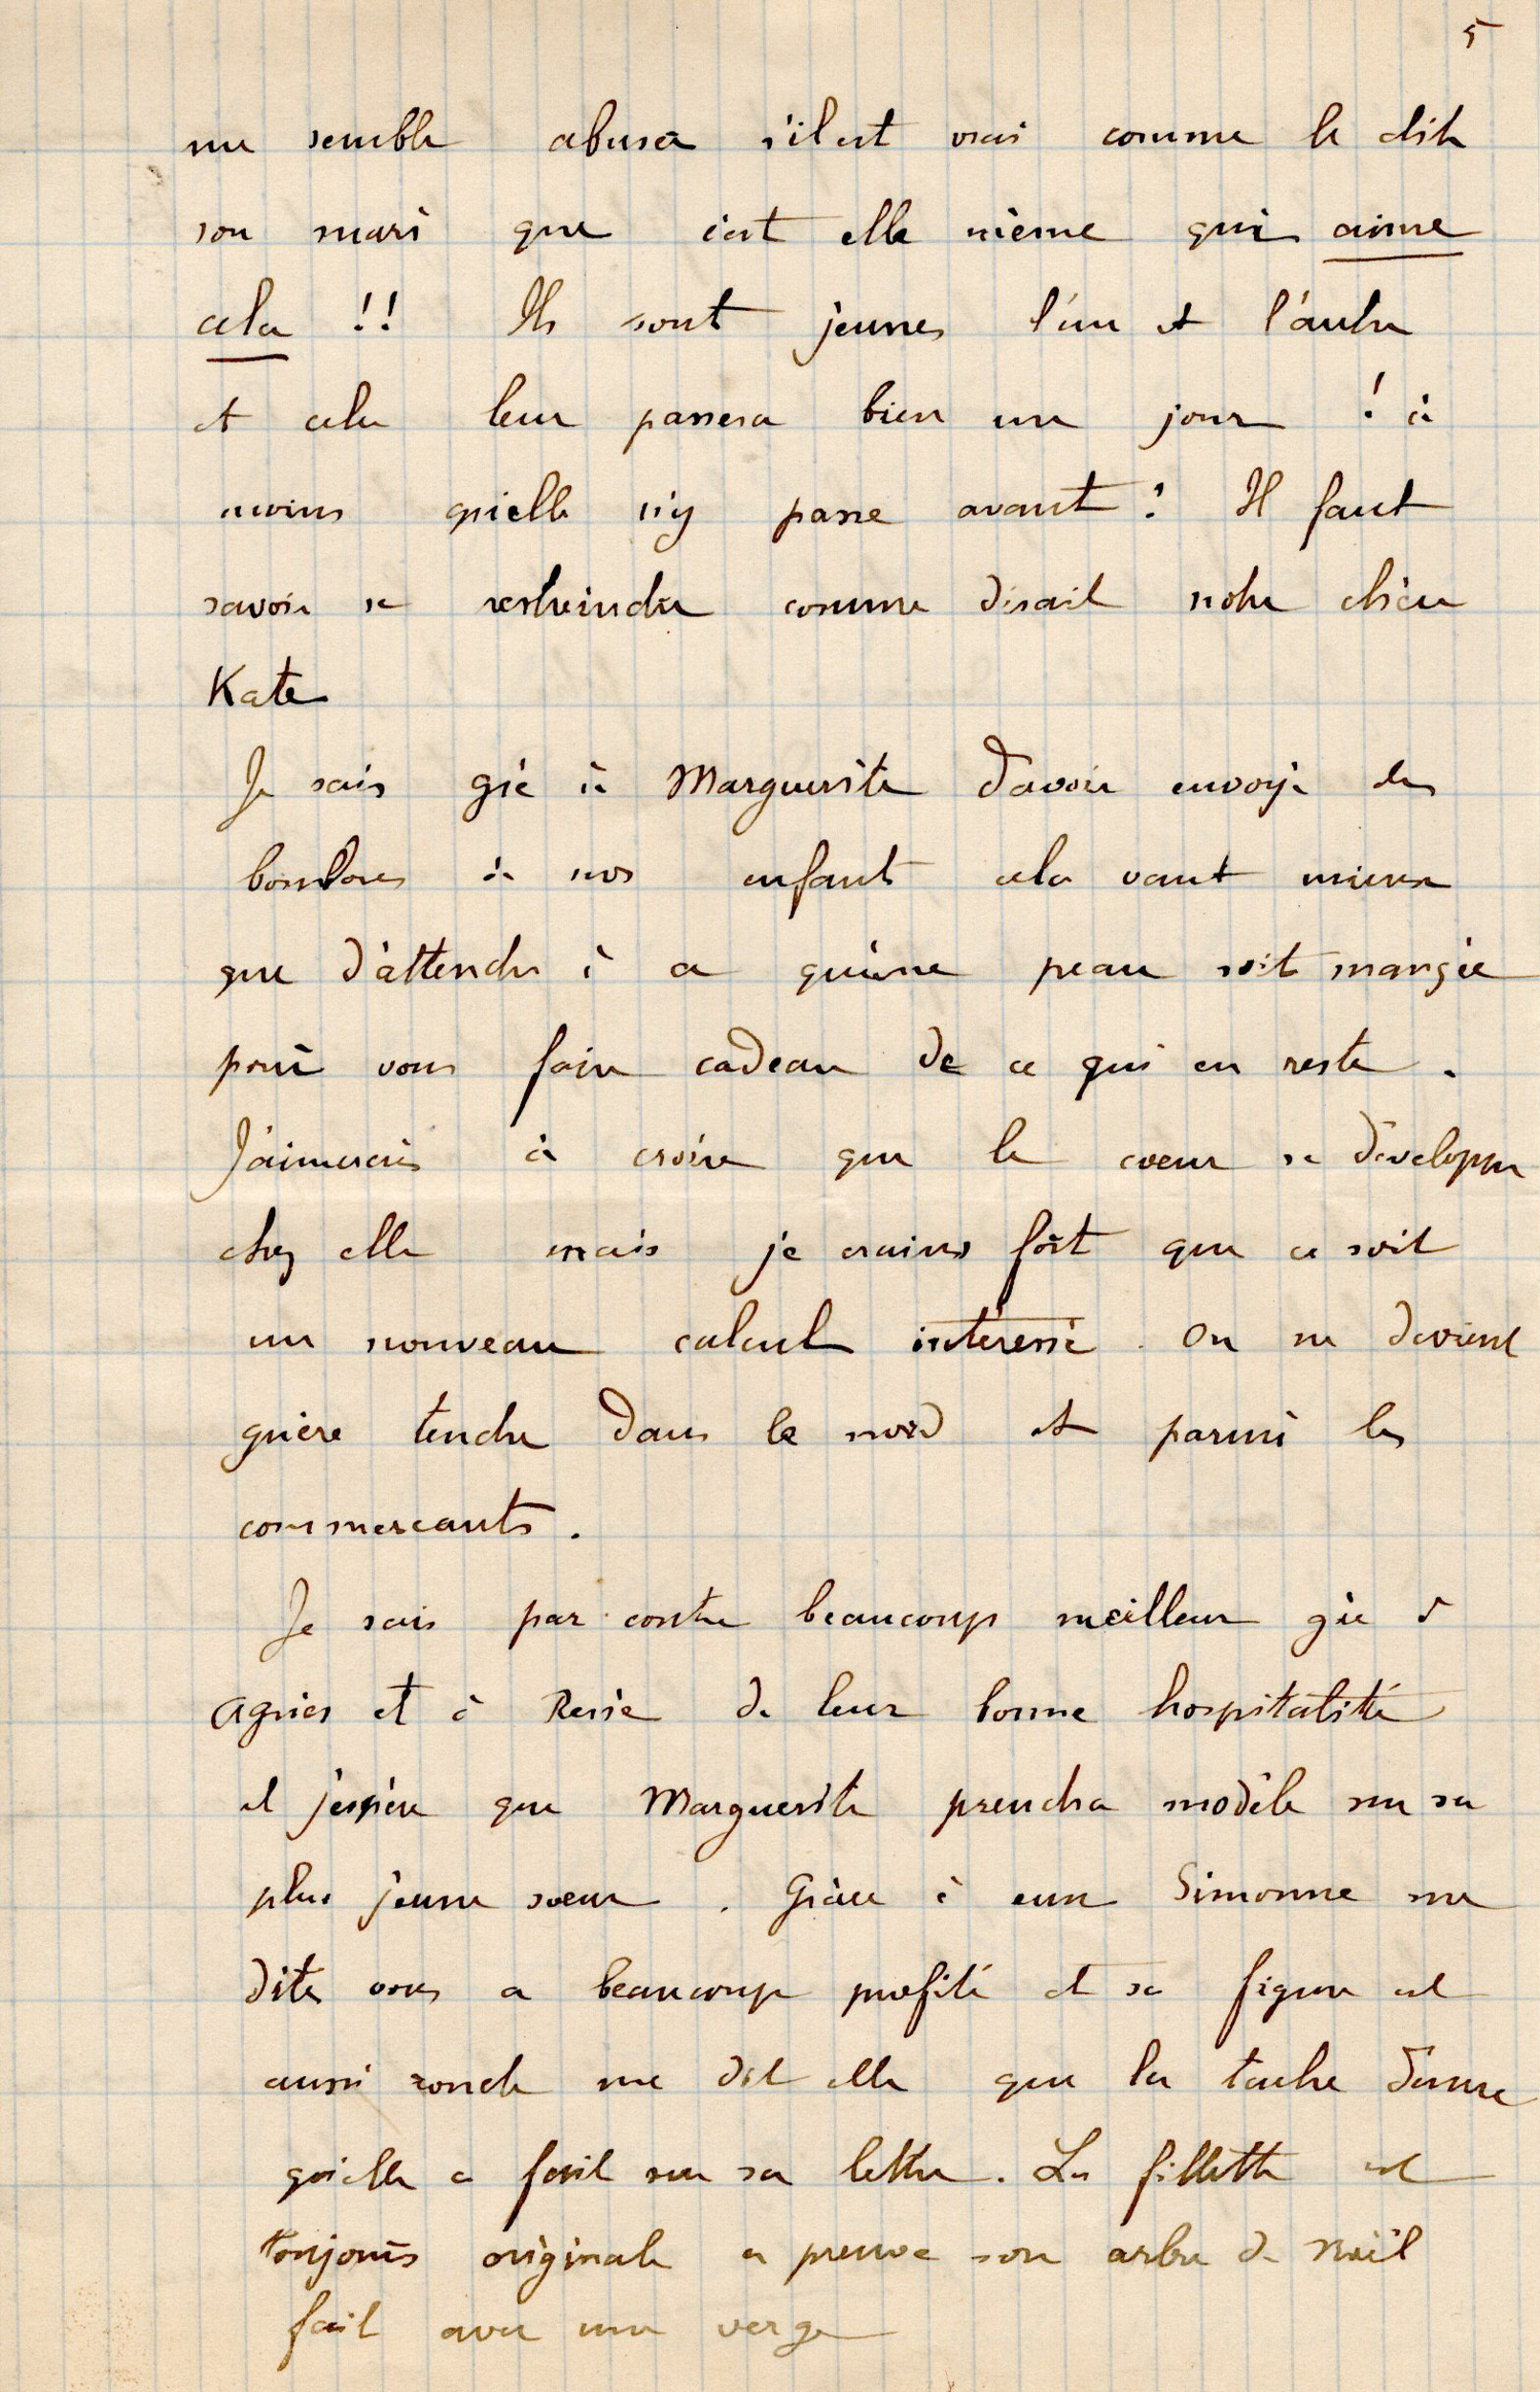 5
me semble abuser s'il est vrai comme le dit
son mari que c'est elle même qui aime
cela !! Ils sont jeunes l'un et l'autre
et cela leur passera bien un jour ! à
moins qu'elle n'y passe avant ! Il faut
savoir se restreindre comme disait notre chère
Kate
Je sais gré à Marguerite d'avoir envoyé des
bonbons à nos enfant cela vaut mieux
que d'attendre à ce qu'une peau soit mangée
pour vous faire cadeau de ce qui en reste .
J'aimerais à croire que le coeur se développe
chez elle mais je crains fort que ce soit
un nouveau calcul intéressé . On ne devient
guère tendre dans le nord et parmi les
commercants .
Je sais par contre beaucoup meilleur gré à
Agnès et à René de leur bonne hospitalité
et j'espère que Marguerite prendra modèle sur sa
plus jeune soeur . Grâce à eux Simonne me
dites vous a beaucoup profité et sa figure est
aussi ronde me dit elle que la tache d'encre
qu'elle a fait sur sa lettre . La fillette est
toujours originale a preuve son arbre de Noël
fait avec une verge